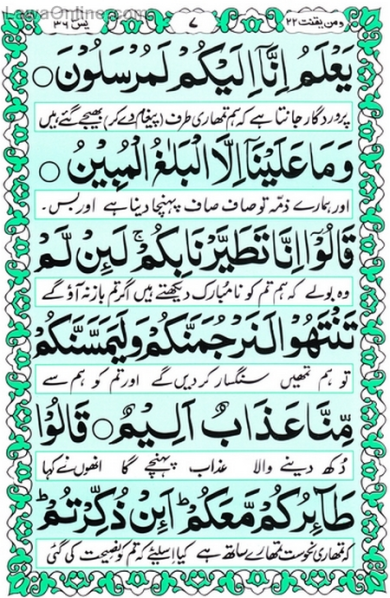 LarraOnline.com
ومن يقنت ۲۲
۷
يس ۳۶
يَعْلَمُ اِنَّاۤ اِلَيْكُمْ لَمُرْسَلُوْنَ ○
پروردگار جانتا ہے کہ ہم تمھاری طرف (پیغام دے کر) بھیجے گئے ہیں
وَمَا عَلَيْنَاۤ اِلَّا الْبَلٰغُ الْمُبِيْنُ ○
اور ہمارے ذمّہ تو صاف صاف پہنچا دینا ہے اور بس۔
قَالُوْۤا اِنَّا تَطَيَّرْنَا بِكُمْ ۚ لَئِنْ لَّمْ
وہ بولے کہ ہم تم کو نامبارک دیکھتے ہیں اگر تم باز نہ آؤ گے
تَنْتَهُوْا لَنَرْجُمَنَّكُمْ وَلَيَمَسَّنَّكُمْ
تو ہم تمھیں سنگسار کردیں گے اور تم کو ہم سے
مِّنَّا عَذَابٌ اَلِيْمٌ ○ قَالُوْا
دُکھ دینے والا عذاب پہنچے گا انھوں نے کہا
طَآئِرُكُمْ مَّعَكُمْ ؕ اَئِنْ ذُكِّرْتُمْ ؕ
کہ تمھاری نحوست تمھارے ساتھ ہے کیا اسلیئے کہ تم کو نصیحت کی گئی